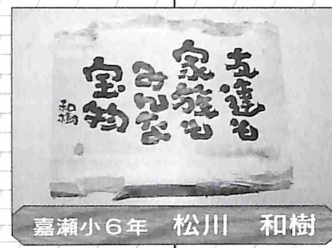 友達も
家族も
みんな
宝物
和樹
嘉瀬小6年 松川 和樹